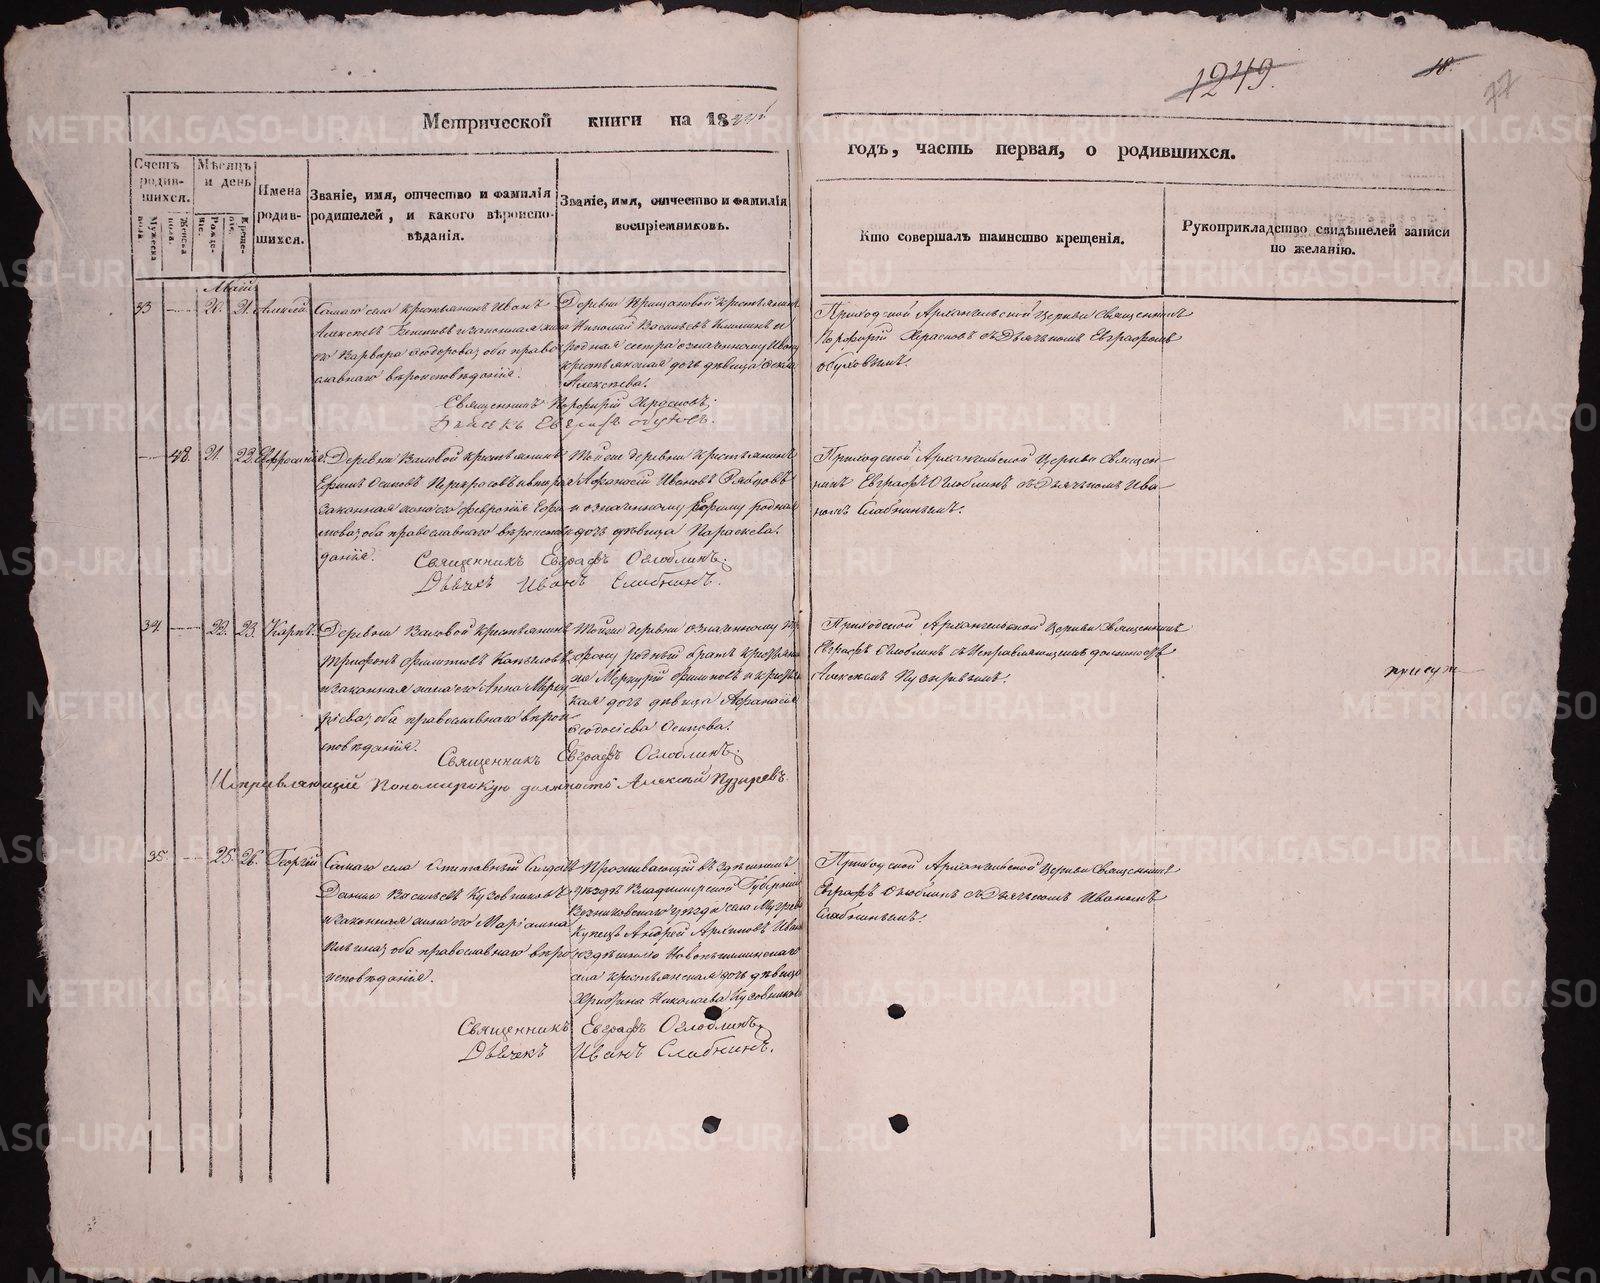 1249.
18.
77
Метрической книги на 18
годъ, часть первая, о родившихся.
Счетъ родив-шихся.
Мужеска пола.
Женска пола.
Мѣсяцъ и день
Рожде-нія.
Креще-нія.
Имена родив-шихся.
Званіе, имя, отчество и фамилія родителей, и какого вѣроиспо-вѣданія.
Званіе, имя, отчество и фамилія воспріемниковъ.
Кто совершалъ таинство крещенія.
Рукоприкладство свидѣтелей записи по желанію.
Маій
33 — 20. 21. Алексѣй
Самаго села крестьянинъ Иванъ
Алексѣевъ и законная жена
его Варвара Ѳеодорова; оба право-
славнаго вѣроисповѣданія.
Деревни крестьянинъ
Николай Васильевъ и
родная сестра означенному Ивану
крестьянская дочь дѣвица
Алексѣева.
Приходской Архангельской Церкви Священникъ
Порфирій Хрисповъ съ Дьячкомъ Евграфомъ
Обуховымъ.
Священникъ Порфирій
Дьячекъ Евграфъ Обуховъ.
— 48. 21. 22. Евфросинія.
Деревни Ваговой крестьянинъ
Ефимъ Осиповъ
законная жена его Февронія
оба православнаго вѣроисповѣ-
данія.
Тойже деревни крестьянинъ
Афанасій Ивановъ
и означенному Ефиму родная
дочь дѣвица Параскева.
Приходской Архангельской Церкви Священ-
никъ Евграфъ Оглоблинъ съ Дьячкомъ Ива-
номъ Слабнинымъ.
Священникъ Евграфъ Оглоблинъ;
Дьячекъ Иванъ Слабнинъ.
34. — 22. 23. Карпъ.
Деревни Ваговой крестьянинъ
Трифонъ Филиповъ Копыловъ
и законная жена его Анна Мерку-
рьева; оба православнаго вѣрои-
сповѣданія.
Тойже деревни означенному Три-
фону родный братъ крестьяни-
нъ Меркурій Филиповъ и крестьян-
ская дочь дѣвица Афанасія
Ѳеодосіева Осипова.
Приходской Архангельской Церкви Священникъ
Евграфъ Оглоблинъ съ Исправляющимъ должность
Алексѣемъ Пузыревымъ.
Священникъ Евграфъ Оглоблинъ;
Исправляющій Пономарскую должность Алексѣй Пузыревъ.
35. — 25. 26. Георгій
Самаго села отставный Солдатъ
Данило Васильевъ Кузовниковъ
и законная жена его Маріамна
Ильина; оба православнаго вѣро-
исповѣданія.
Проживающій въ здѣшнемъ
уѣздѣ Владимирской Губерніи
Вязниковскаго уѣзда села
Купецъ Андрей Архиповъ
здѣшняго Новопышминскаго
села крестьянская дочь дѣвица
Христина Николаева Кузовникова
Приходской Архангельской Церкви Священникъ
Евграфъ Оглоблинъ съ Дьячкомъ Иваномъ
Слабнинымъ.
Священникъ Евграфъ Оглоблинъ;
Дьячекъ Иванъ Слабнинъ.
METRIKI.GASO-URAL.RU